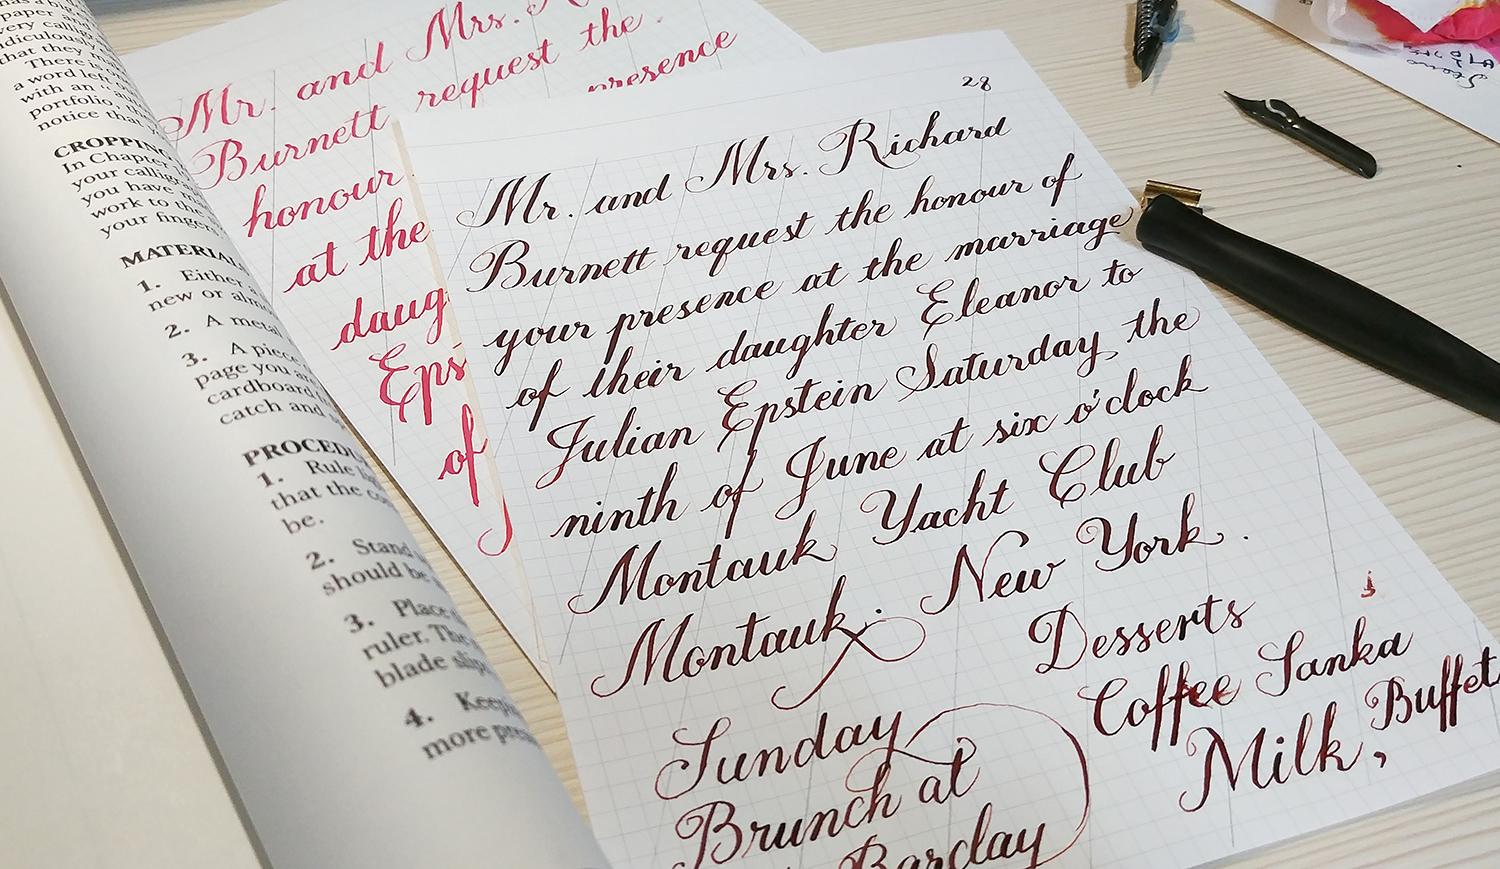 paper
very
ridiculously
that they
There
a word left
with an
portfolio, the
notice that
CROPPING
In Chapter
your callig
you have
work to the
your finger
MATERIALS
1. Either
new or
2. A metal
3. A piece
page you are
cardboard
catch and
PROCEDU
1. Rule
that the
be.
2. Stand
should be
3. Place
ruler. The
blade
4. Keep
more
Mr. and Mrs. R
Burnett request the
presence
honour
at the
daug
Eps
of
28
Mr. and Mrs. Richard
Burnett request the honour of
your presence at the marriage
of their daughter Eleanor to
Julian Epstein Saturday, the
ninth of June at six o'clock
Montauk Yacht Club
Montauk. New York.
Desserts
Coffee Sanka
Milk, Buffet
Sunday
Brunch at
Barclay